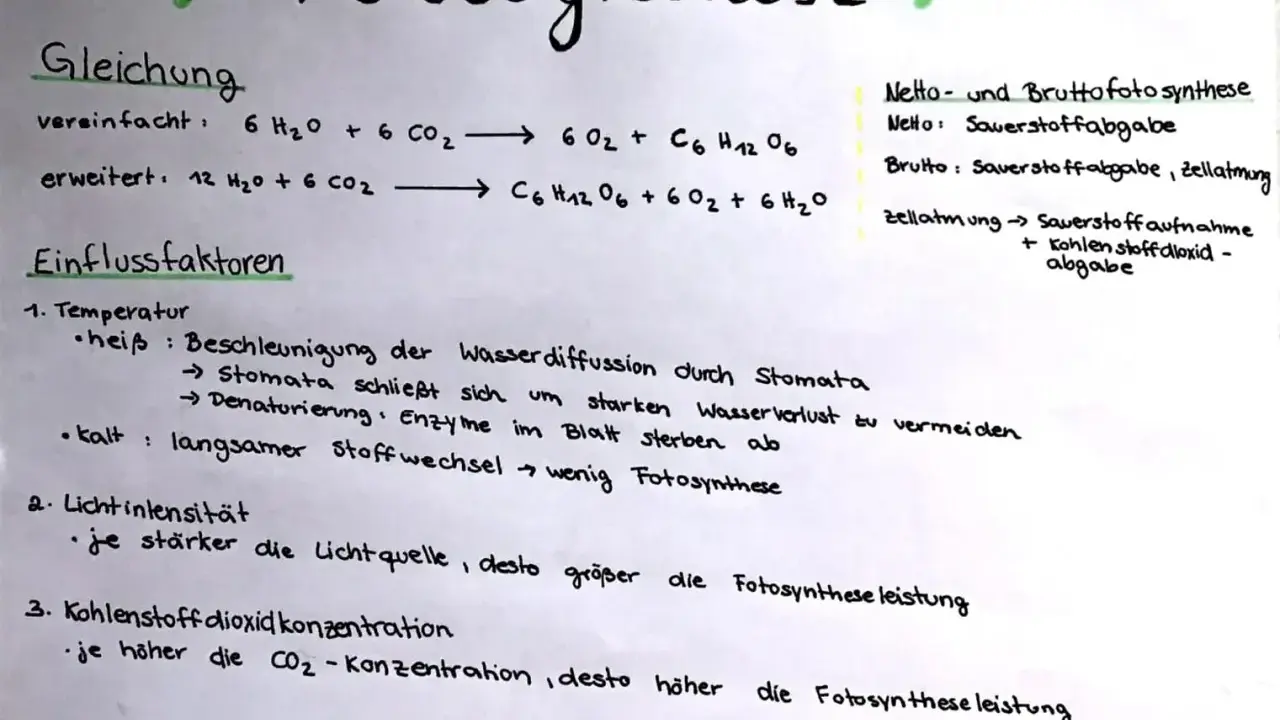 Gleichung
vereinfacht: 6 H₂O + 6 CO₂ → 6 O₂ + C₆ H₁₂ O₆
erweitert: 12 H₂O + 6 CO₂ → C₆ H₁₂ O₆ + 6 O₂ + 6 H₂O
Netto- und Bruttofotosynthese
Netto: Sauerstoffabgabe
Brutto: Sauerstoffabgabe, Zellatmung
Zellatmung → Sauerstoffaufnahme
+ Kohlenstoffdioxid-
abgabe
Einflussfaktoren
1. Temperatur
• heiß: Beschleunigung der Wasserdiffussion durch Stomata
→ Stomata schließt sich um starken Wasserverlust zu vermeiden
→ Denaturierung: Enzyme im Blatt sterben ab
• kalt: langsamer Stoffwechsel → wenig Fotosynthese
2. Lichtintensität
• je stärker die Lichtquelle, desto größer die Fotosyntheseleistung
3. Kohlenstoffdioxidkonzentration
• je höher die CO₂-Konzentration, desto höher die Fotosyntheseleistung